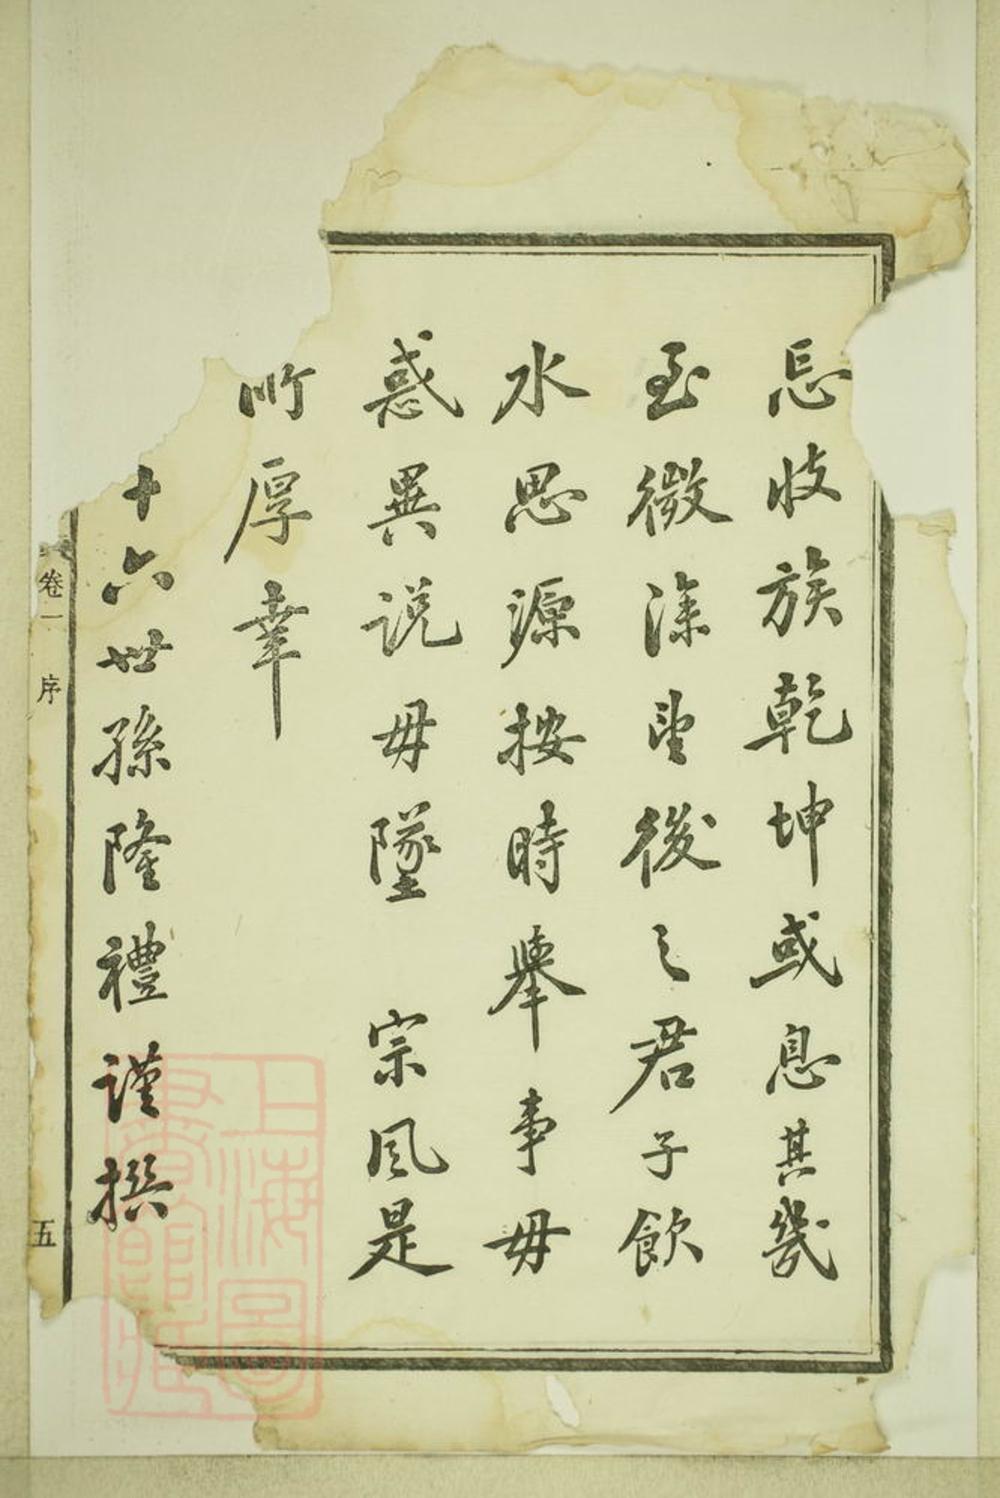 忘敗族乾坤或息其幾
至微深望後之君子飲
水思源按時舉事毋
惑異説毋墜 宗風是
所厚幸
十六世孫隆禮謹撰
卷一 序
五
上海圖
書館藏